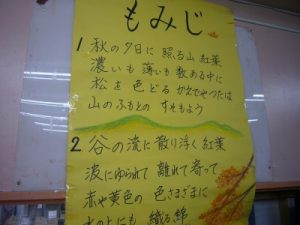 もみじ
1 秋の夕日に 照る山 紅葉
濃いも 薄いも 数ある中に
松を 色どる かえでやつたは
山のふもとの すそもよう
2 谷の流に 散り浮く 紅葉
波にゆられて 離れて 寄って
赤や黄色の 色さまざまに
水の上にも 織る 錦